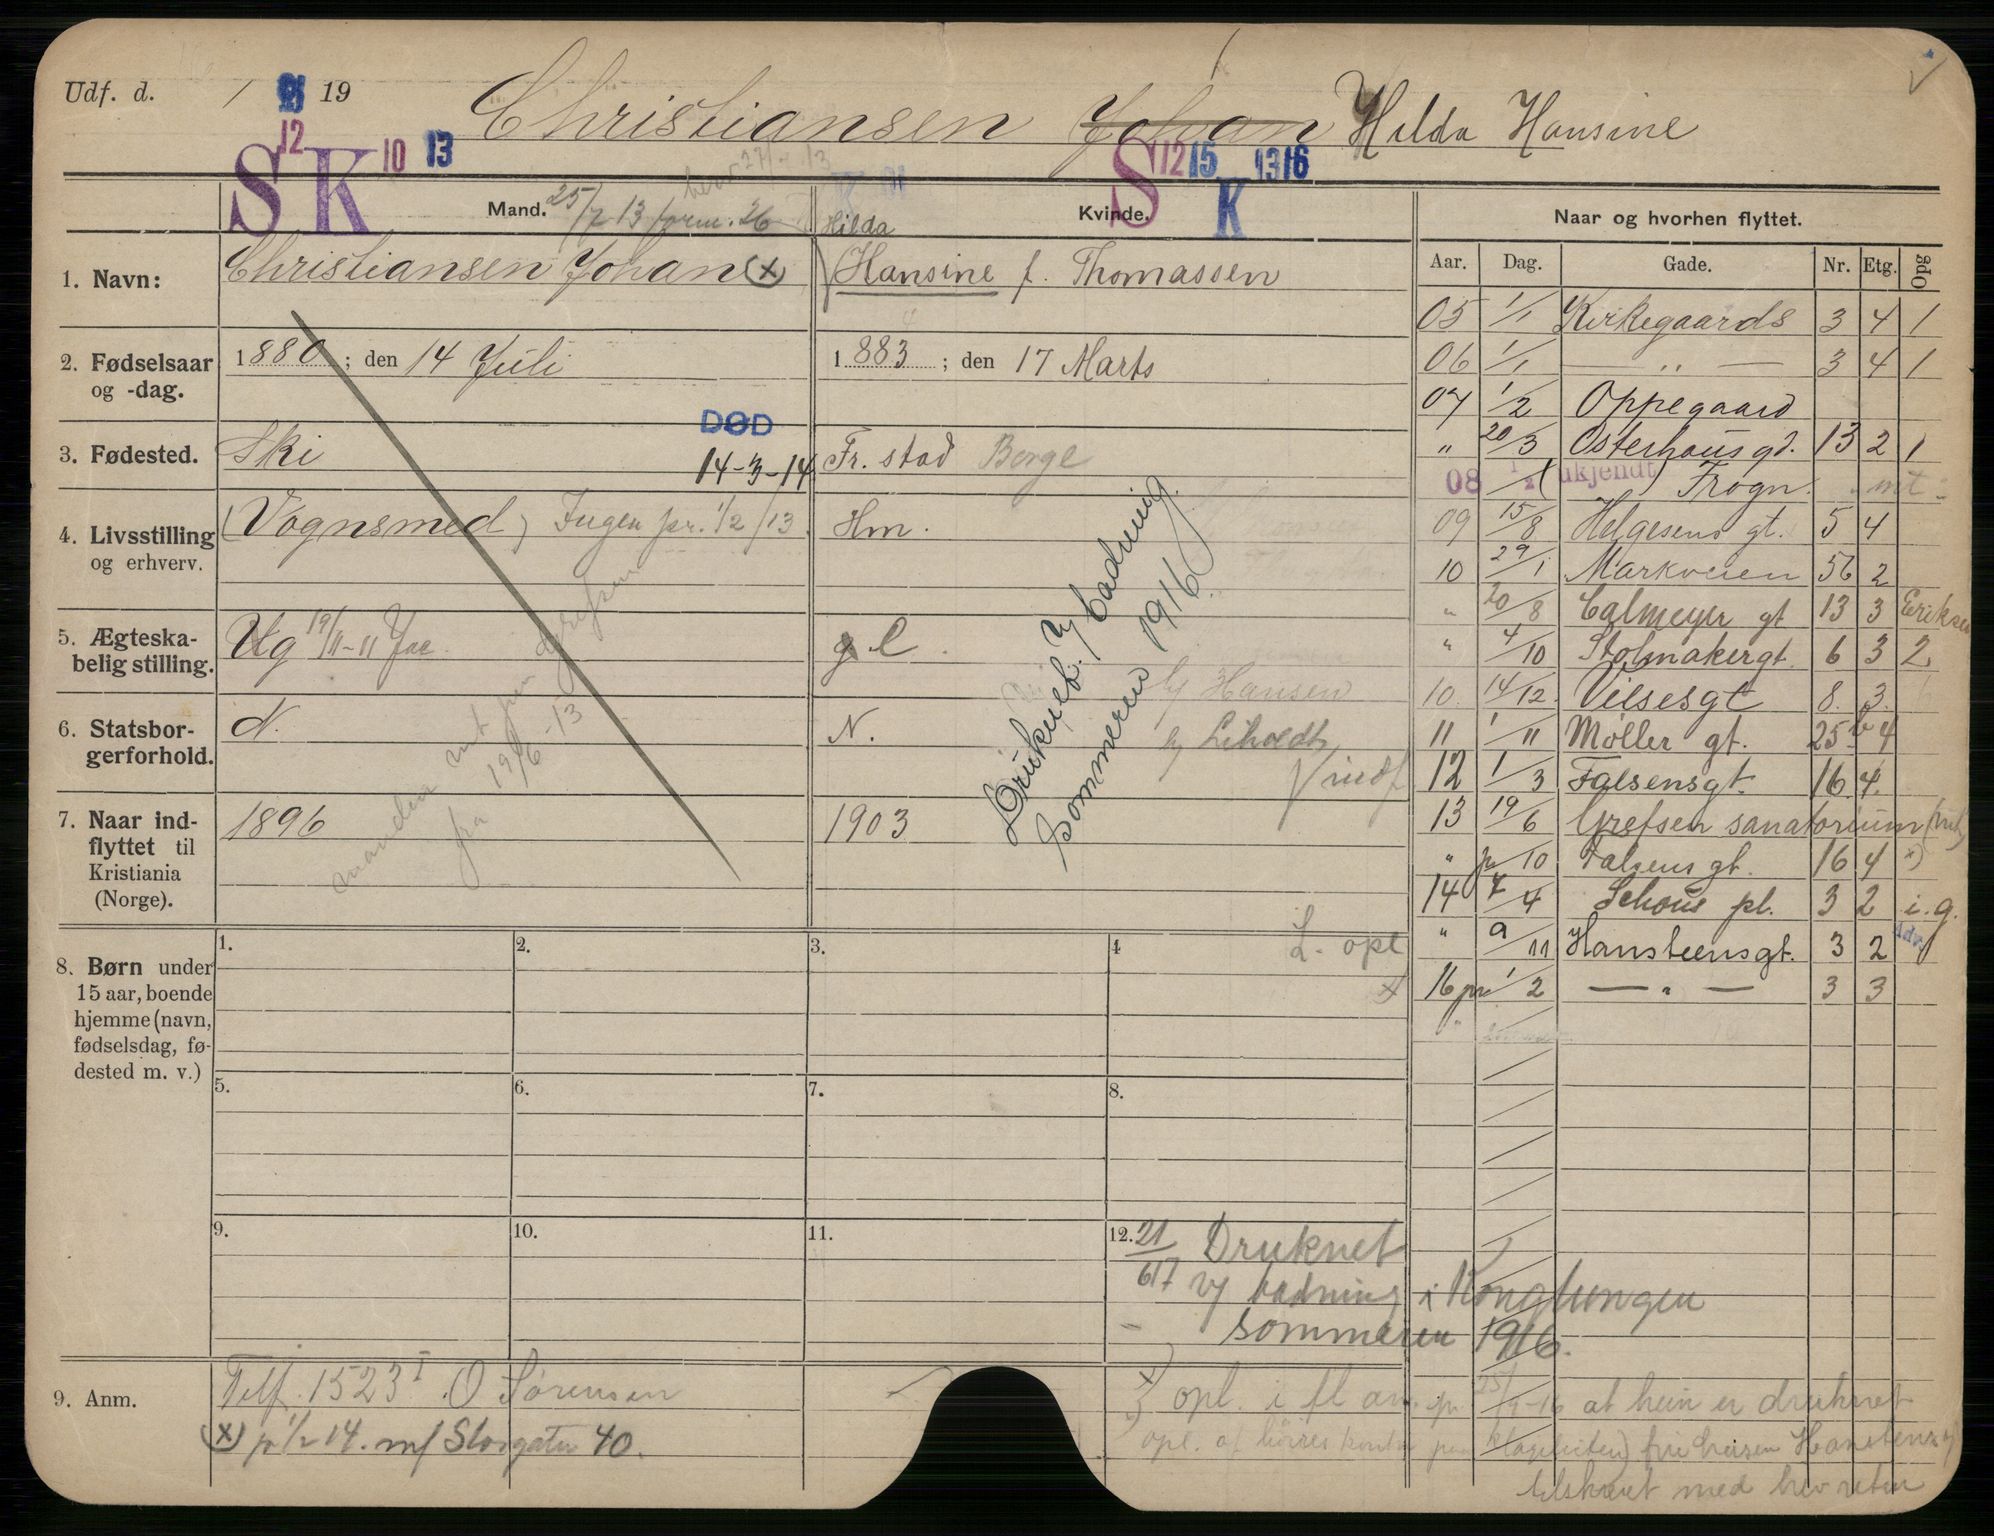 Udf. d. 1 19
Christiansen Johan Hilda Hansine
S 12 K 10 13
S 12 15 K 13 16
Mand. 25/7 13
Kvinde.
Naar og hvorhen flyttet.
Hilda
1. Navn: Christiansen Johan (x) Hansine f. Thomassen
Aar. Dag. Gade. Nr. Etg. Opg
2. Fødselsaar og -dag. 1880 ; den 14 Juli 1883 ; den 17 Marts
DØD
14-3-14
3. Fødested. Ski Fr. stad Borge
4. Livsstilling og erhverv. (Vognsmed) Ingen pr. 1/2/13. Hm.
5. Ægteska-
belig stilling. Ug 19/11-11 g e
6. Statsbor-
gerforhold. N. N.
7. Naar ind-
flyttet til
Kristiania
(Norge). 1896 1903
manden
fra 19/6-13 Grefsen
Druknet v/ badning
sommeren 1916.
Hansen
05 1/1 Kirkegaards 3 4 1
06 1/1 — " — 3 4 1
07 1/2 Oppegaard
" 20/3 Osterhausgd. 13 2 1
08 1/2 ukjendt Frogn.
09 15/8 Helgesens gt. 5 4
10 29/1 Markveien 56 2
" 20/8 Calmeyer gt 13 3 Eriksen
" 4/10 Stolmakergt. 6 3 2
10. 14/12 Vilsesgt 8. 3.
11 1/11 Møller gt. 25 b 4
12 1/3 Falsensgt. 16 4.
13 19/6 Grefsen sanatorium
" pr/10 Falsens gt. 16 4 x)
14 7/4 Schous pl. 3 2 i. g.
" 9/11 Hansteensgt. 3 2 Adr.
16 pr 1/2 — " — 3 3
8. Børn under
15 aar, boende
hjemme (navn,
fødselsdag, fø-
dested m. v.)
1. 2. 3. 4 L. opl
5. 6. 7. 8.
9. 10. 11. 12.
21/6 17 Druknet
v/ badning i Konglungen
sommeren 1916.
9. Anm. Telf. 1523 I. O Sørensen
(x) pr 1/2 14. m/ Storgaten 40.
x) opl. i fl an. pr 25/ -16 at hun er druknet
Hansteens
tilskrevet med brev